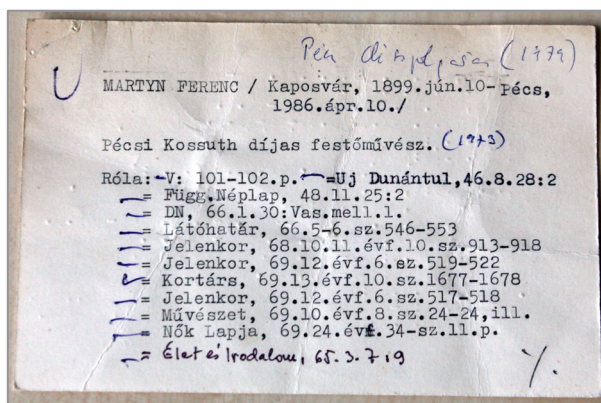 Pécs díszpolgára (1979)
MARTYN FERENC / Kaposvár, 1899.jún.10-Pécs,
1986.ápr.10./
Pécsi Kossuth díjas festőművész. (1973)
Róla: -V: 101-102.p. =Uj Dunántul,46.8.28:2
= Függ.Néplap, 48.11.25:2
= DN, 66.1.30:Vas.mell.1.
= Látóhatár, 66.5-6.sz.546-553
= Jelenkor, 68.10.11.évf.10.sz.913-918
= Jelenkor, 69.12.évf.6.sz.519-522
= Kortárs, 69.13.évf.10.sz.1677-1678
= Jelenkor, 69.12.évf.6.sz.517-518
= Művészet, 69.10.évf.8.sz.24-24,ill.
= Nők Lapja, 69.24.évf.34-sz.11.p.
= Élet és Irodalom, 65.3.7:9
%.